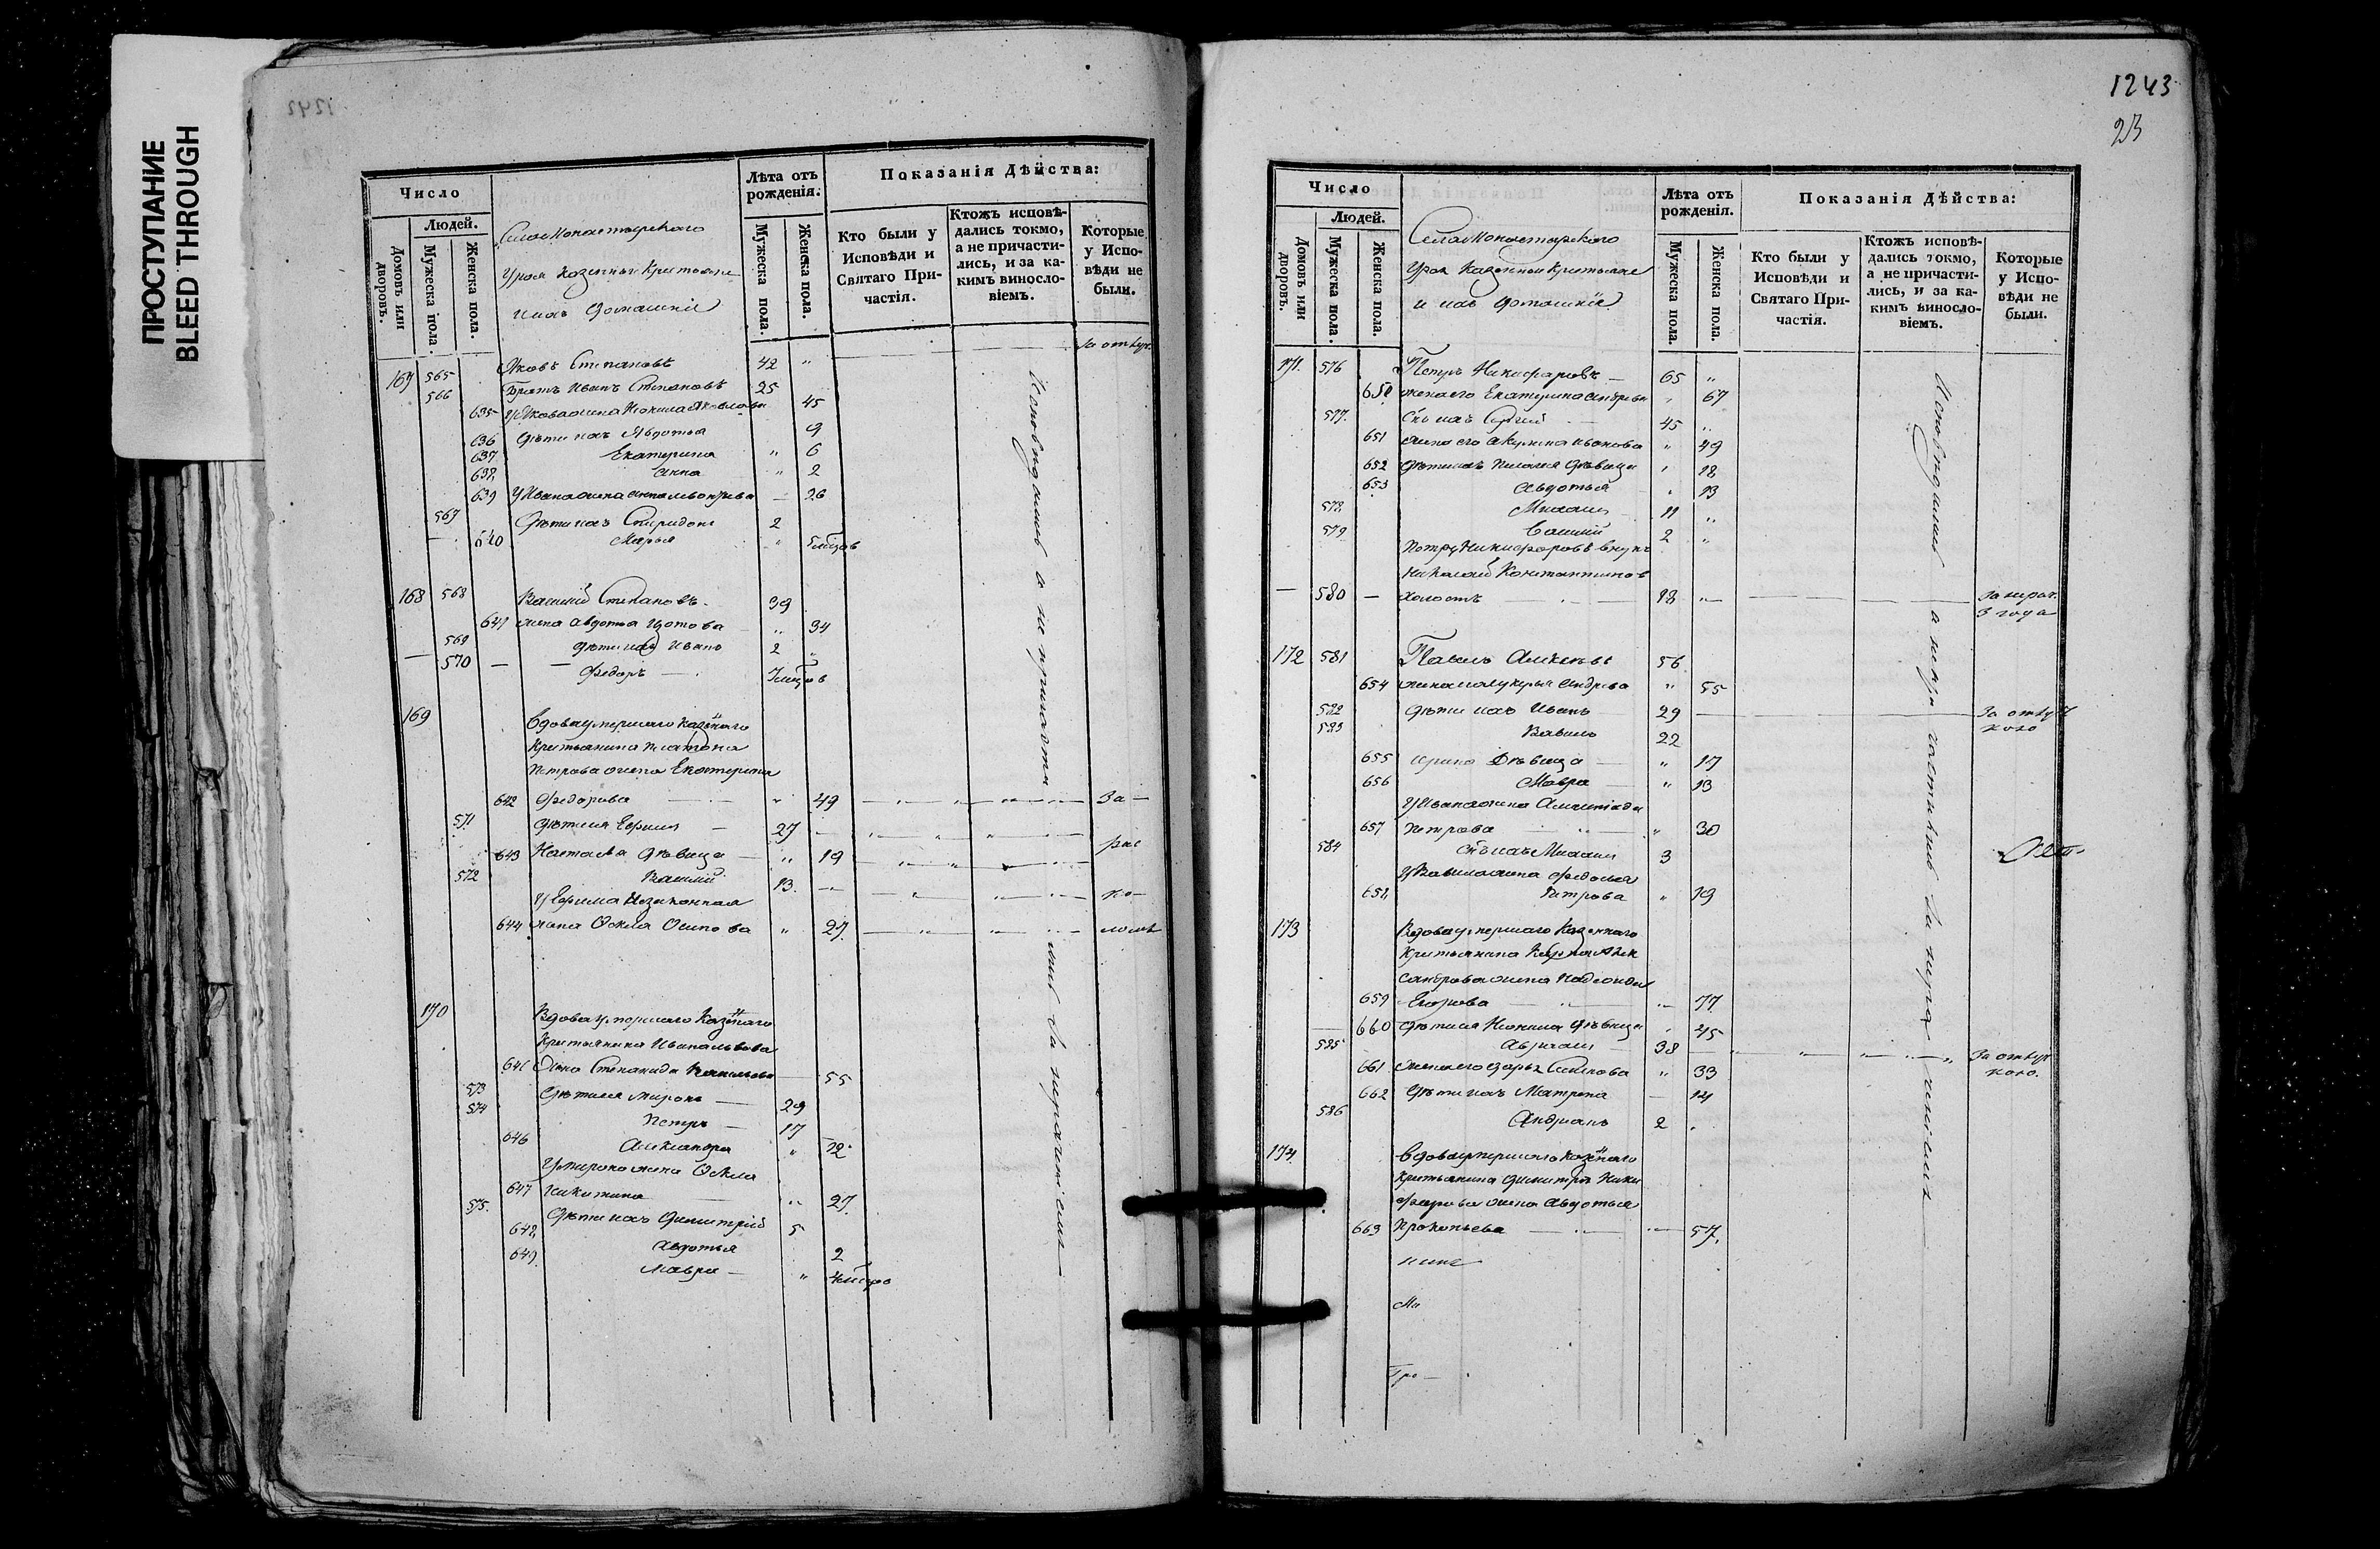 ПРОСТУПАНИЕ
BLEED THROUGH
Число
Людей.
Домовъ или дворовъ.
Мужеска пола.
Женска пола.
Села Монастырскаго
Урая Казенныи Крестьяне
и ихъ Домашніе
Лѣта отъ рожденія.
Мужеска пола.
Женска пола.
Показанія Дѣйства:
Кто были у Исповѣди и Святаго Причастія.
Ктожъ исповѣдались токмо, а не причастились, и за какимъ винословіемъ.
Которые у Исповѣди не были.
167 565 Яковъ Степановъ 42 " За отлуч.
566 Братъ Иванъ Степановъ 25
635 У Якова жена Неонила Яковлева 45
636 Дѣти ихъ Авдотья 9
637 Екатерина " 6
638 Анна " 2
639 У Ивана жена Анна 26
567 Дѣти ихъ Спиридонъ 2
640 Марья "
168 568 Василій Степановъ 39
641 жена Авдотья Изотова " 34
569 Дѣти ихъ Иванъ 2 "
570 Федоръ
169 Вдова умершаго казеннаго
Крестьянина Платона
Петрова жена Екатерина
642 Федорова " 49 За
571 Дѣти ея Ефимъ 27
643 Настасья Дѣвица " 19 рас
572 Василій 13
У Ефима Незаконная ко
644 жена Фекла Осипова " 27 ломъ
170 Вдова умершаго казеннаго
Крестьянина Ивана Львова
жена Степанида 55
573 Дѣти ея Миронъ 29
574 Петръ 17
646 Александра " 12
У Мирона жена Фекла
647 Никитина " 27
575 Дѣти ихъ Димитрій 5
648 Авдотья 2
649 Мавра "
Исповѣдались а не причастились за нерачениемъ
1243
23
Число
Людей.
Домовъ или дворовъ.
Мужеска пола.
Женска пола.
Села Монастырскаго
Урая Казенныи Крестьяне
и ихъ Домашніе
Лѣта отъ рожденія.
Мужеска пола.
Женска пола.
Показанія Дѣйства:
Кто были у Исповѣди и Святаго Причастія.
Ктожъ исповѣдались токмо, а не причастились, и за какимъ винословіемъ.
Которые у Исповѣди не были.
171 576 Петръ Никифоровъ 65 "
650 жена его Екатерина 67
577 Снъ ихъ Сергій 45 "
651 жена его Акулина Иванова " 49
652 Дѣти ихъ Пелагея Дѣвица 18
653 Авдотья 13
578 Михаилъ 11 "
579 Василій 2 "
Петру Никифорову внукъ
Николай Константиновъ
580 холостъ 18 За нерач. 3 года
172 581 Павелъ Алексѣевъ 56
654 жена Андреева " 55
582 Дѣти ихъ Иванъ 29 За отлучкою
583 Вавила 22
655 Ирина Дѣвица " 17
656 Мавра " 13
У Ивана жена
657 Петрова " 30
584 Снъ ихъ Михаилъ 3
У Вавила жена Федосья
658 Петрова " 19
173 Вдова умершаго Казеннаго
Крестьянина Карпа Алек
сандрова жена
659 Егорова 77
660 Дѣти ея Неонила Дѣвица 45
585 Авраамъ 38 За отлучкою.
661 жена его Дарья " 33
662 Дѣти ихъ Матрена 14
586 Андріанъ 2
174 Вдова умершаго Казеннаго
Крестьянина Димитрія Ники
форова жена Авдотья
663 Прокопьева 57
Исповѣдались а не причастились за нерачениемъ